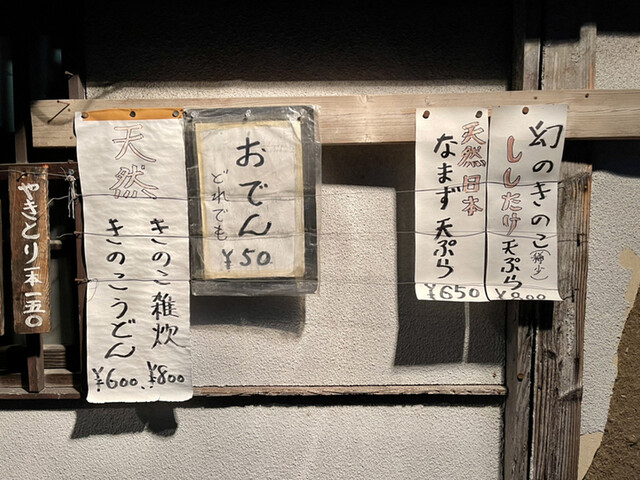 幻のきのこ(稀少)
ししたけ天ぷら
¥800
天然日本
なまず天ぷら
¥650
おでん
どれでも
¥50
天然
きのこ雑炊
¥800
きのこうどん
¥600
やきとり一本一五〇